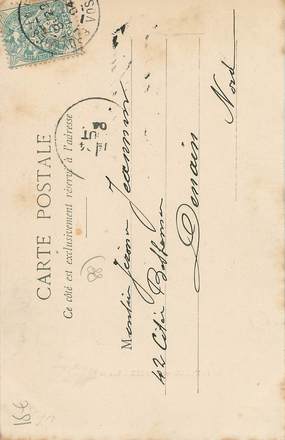 CARTE POSTALE
Ce côté est exclusivement réservé à l'adresse
Monsieur Jeannin
42 Cité
Denain
Nord
88
15€